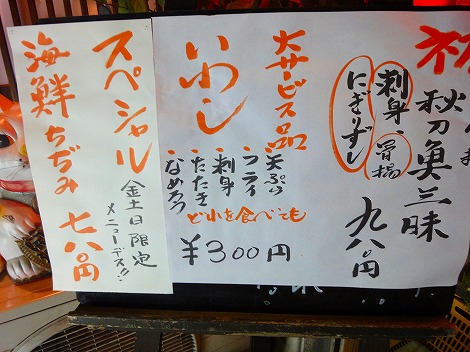 秋刀魚三昧
刺身、骨揚
にぎりずし
九八〇円
大サービス品
いわし
・天ぷら
・フライ
・刺身
・たたき
・なめろう
どれを食べても
¥300円
スペシャル
金土日限定
メニューデス!!
海鮮ちぢみ 七八〇円